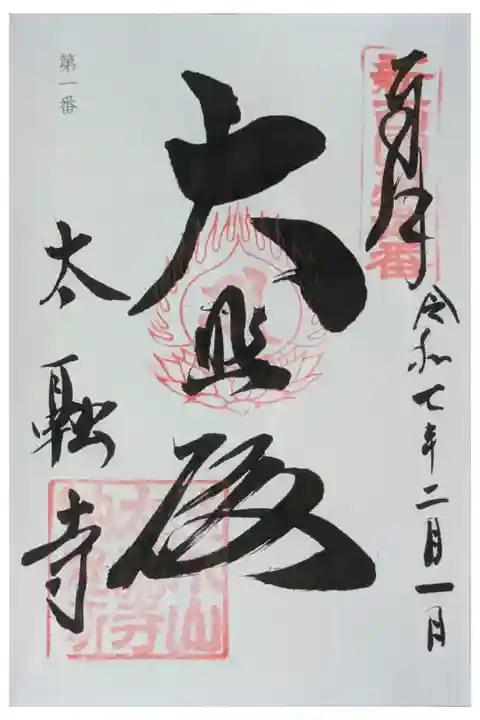 奉拝
令和七年二月一日
大悲殿
太融寺
第一番